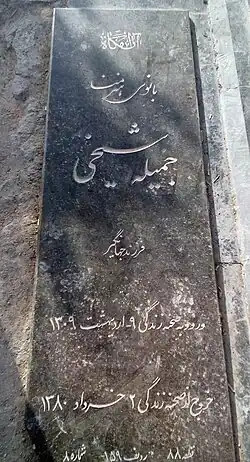 آرامگاه
بانوی هنرمند
جمیله شیخی
فرزند جهانگیر
ورود به صحنه زندگی ۹ اردیبهشت ۱۳۰۹
خروج از صحنه زندگی ۲ خرداد ۱۳۸۰
قطعه ۸۸ ردیف ۱۵۹ شماره ۸